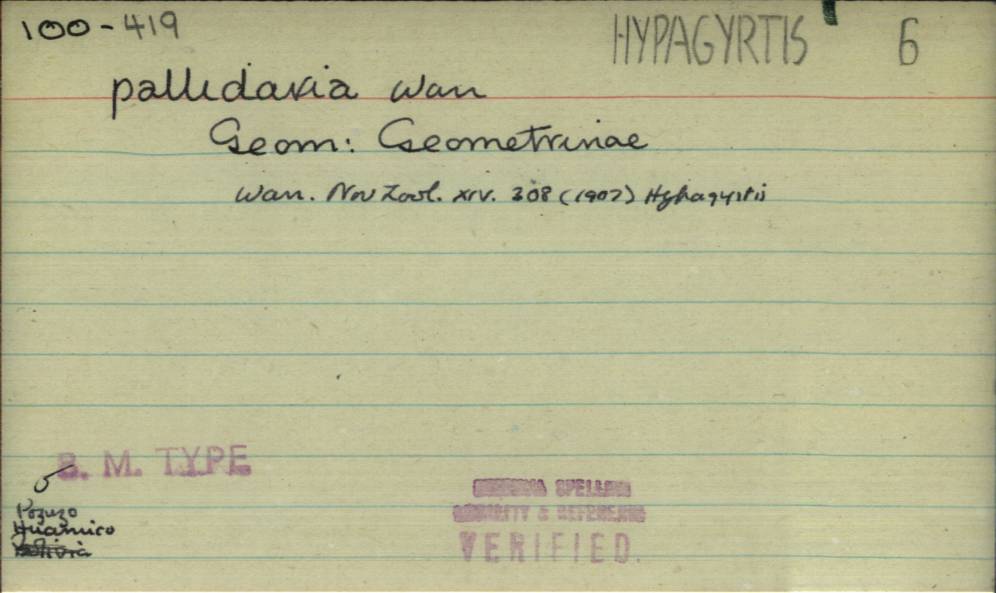 100-419 HYPAGYRTIS 6
pallidaria Warr
Geom: Geometrinae
Warr. Nov Zool. xiv. 308 (1907) Hyhagyrtis
B. M. TYPE
♂
Pozuzo
Huanuco
Bolivia
SPELLING
PRIORITY & REFERENCE
VERIFIED.